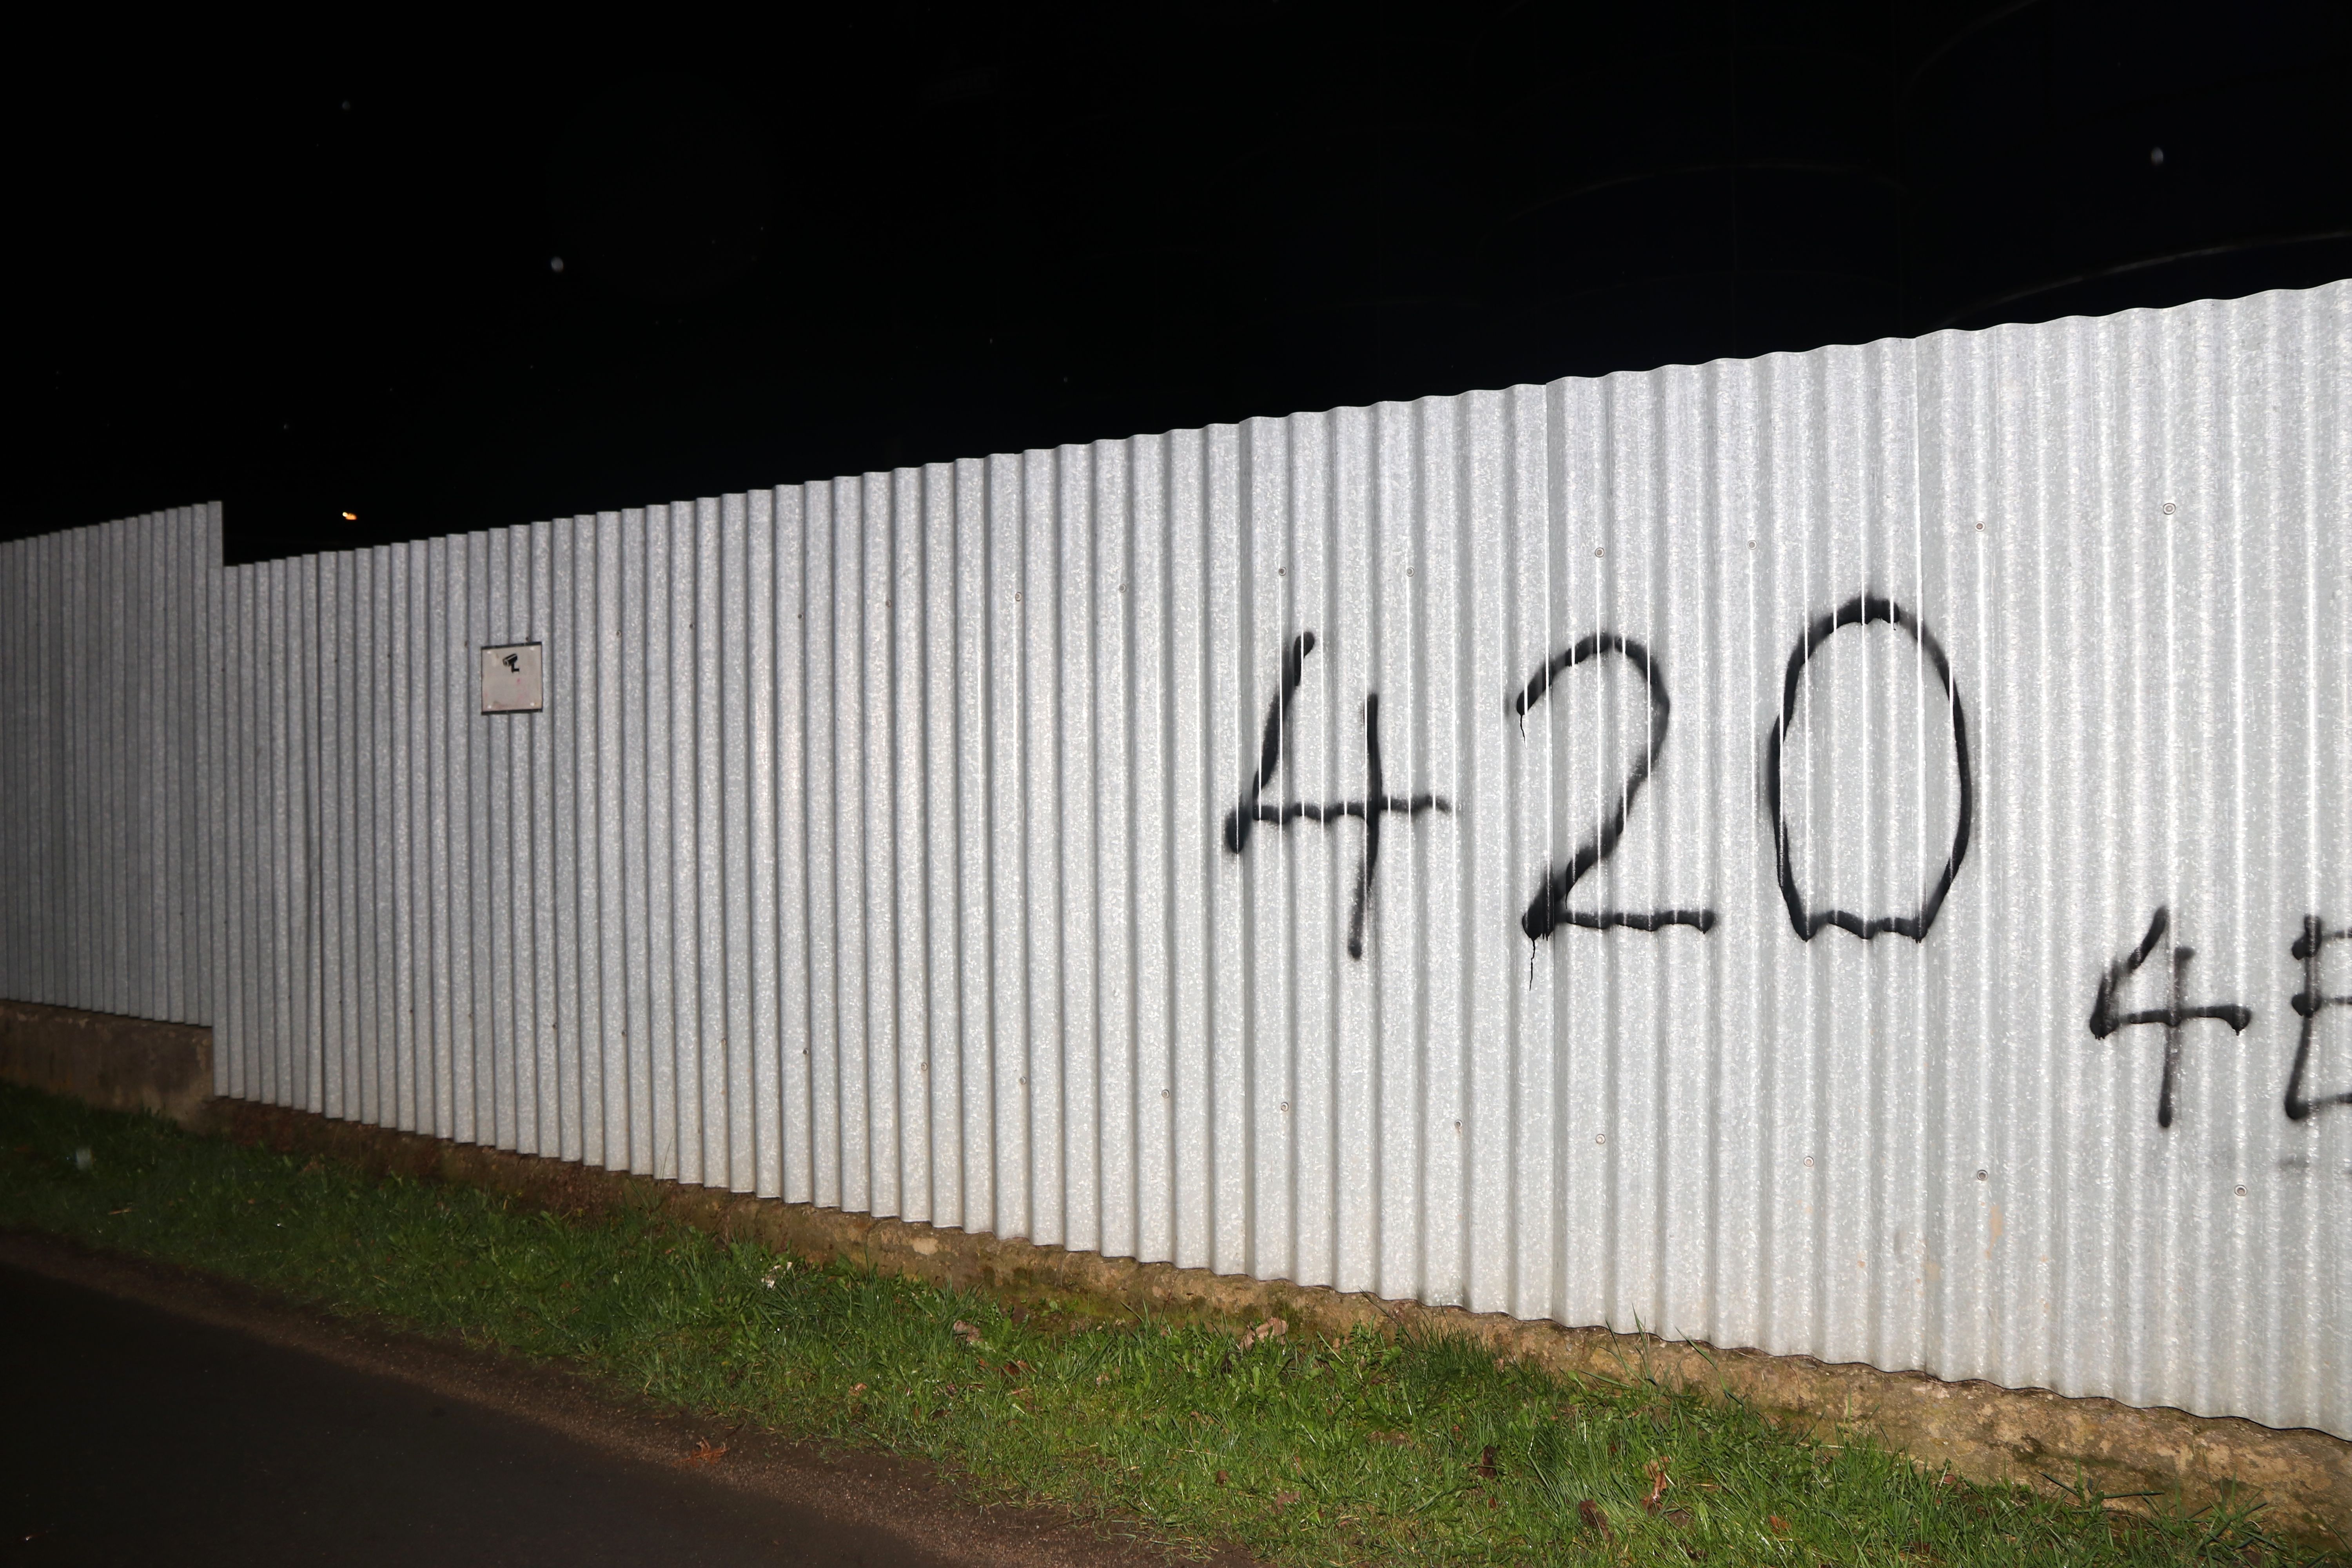 420
4E